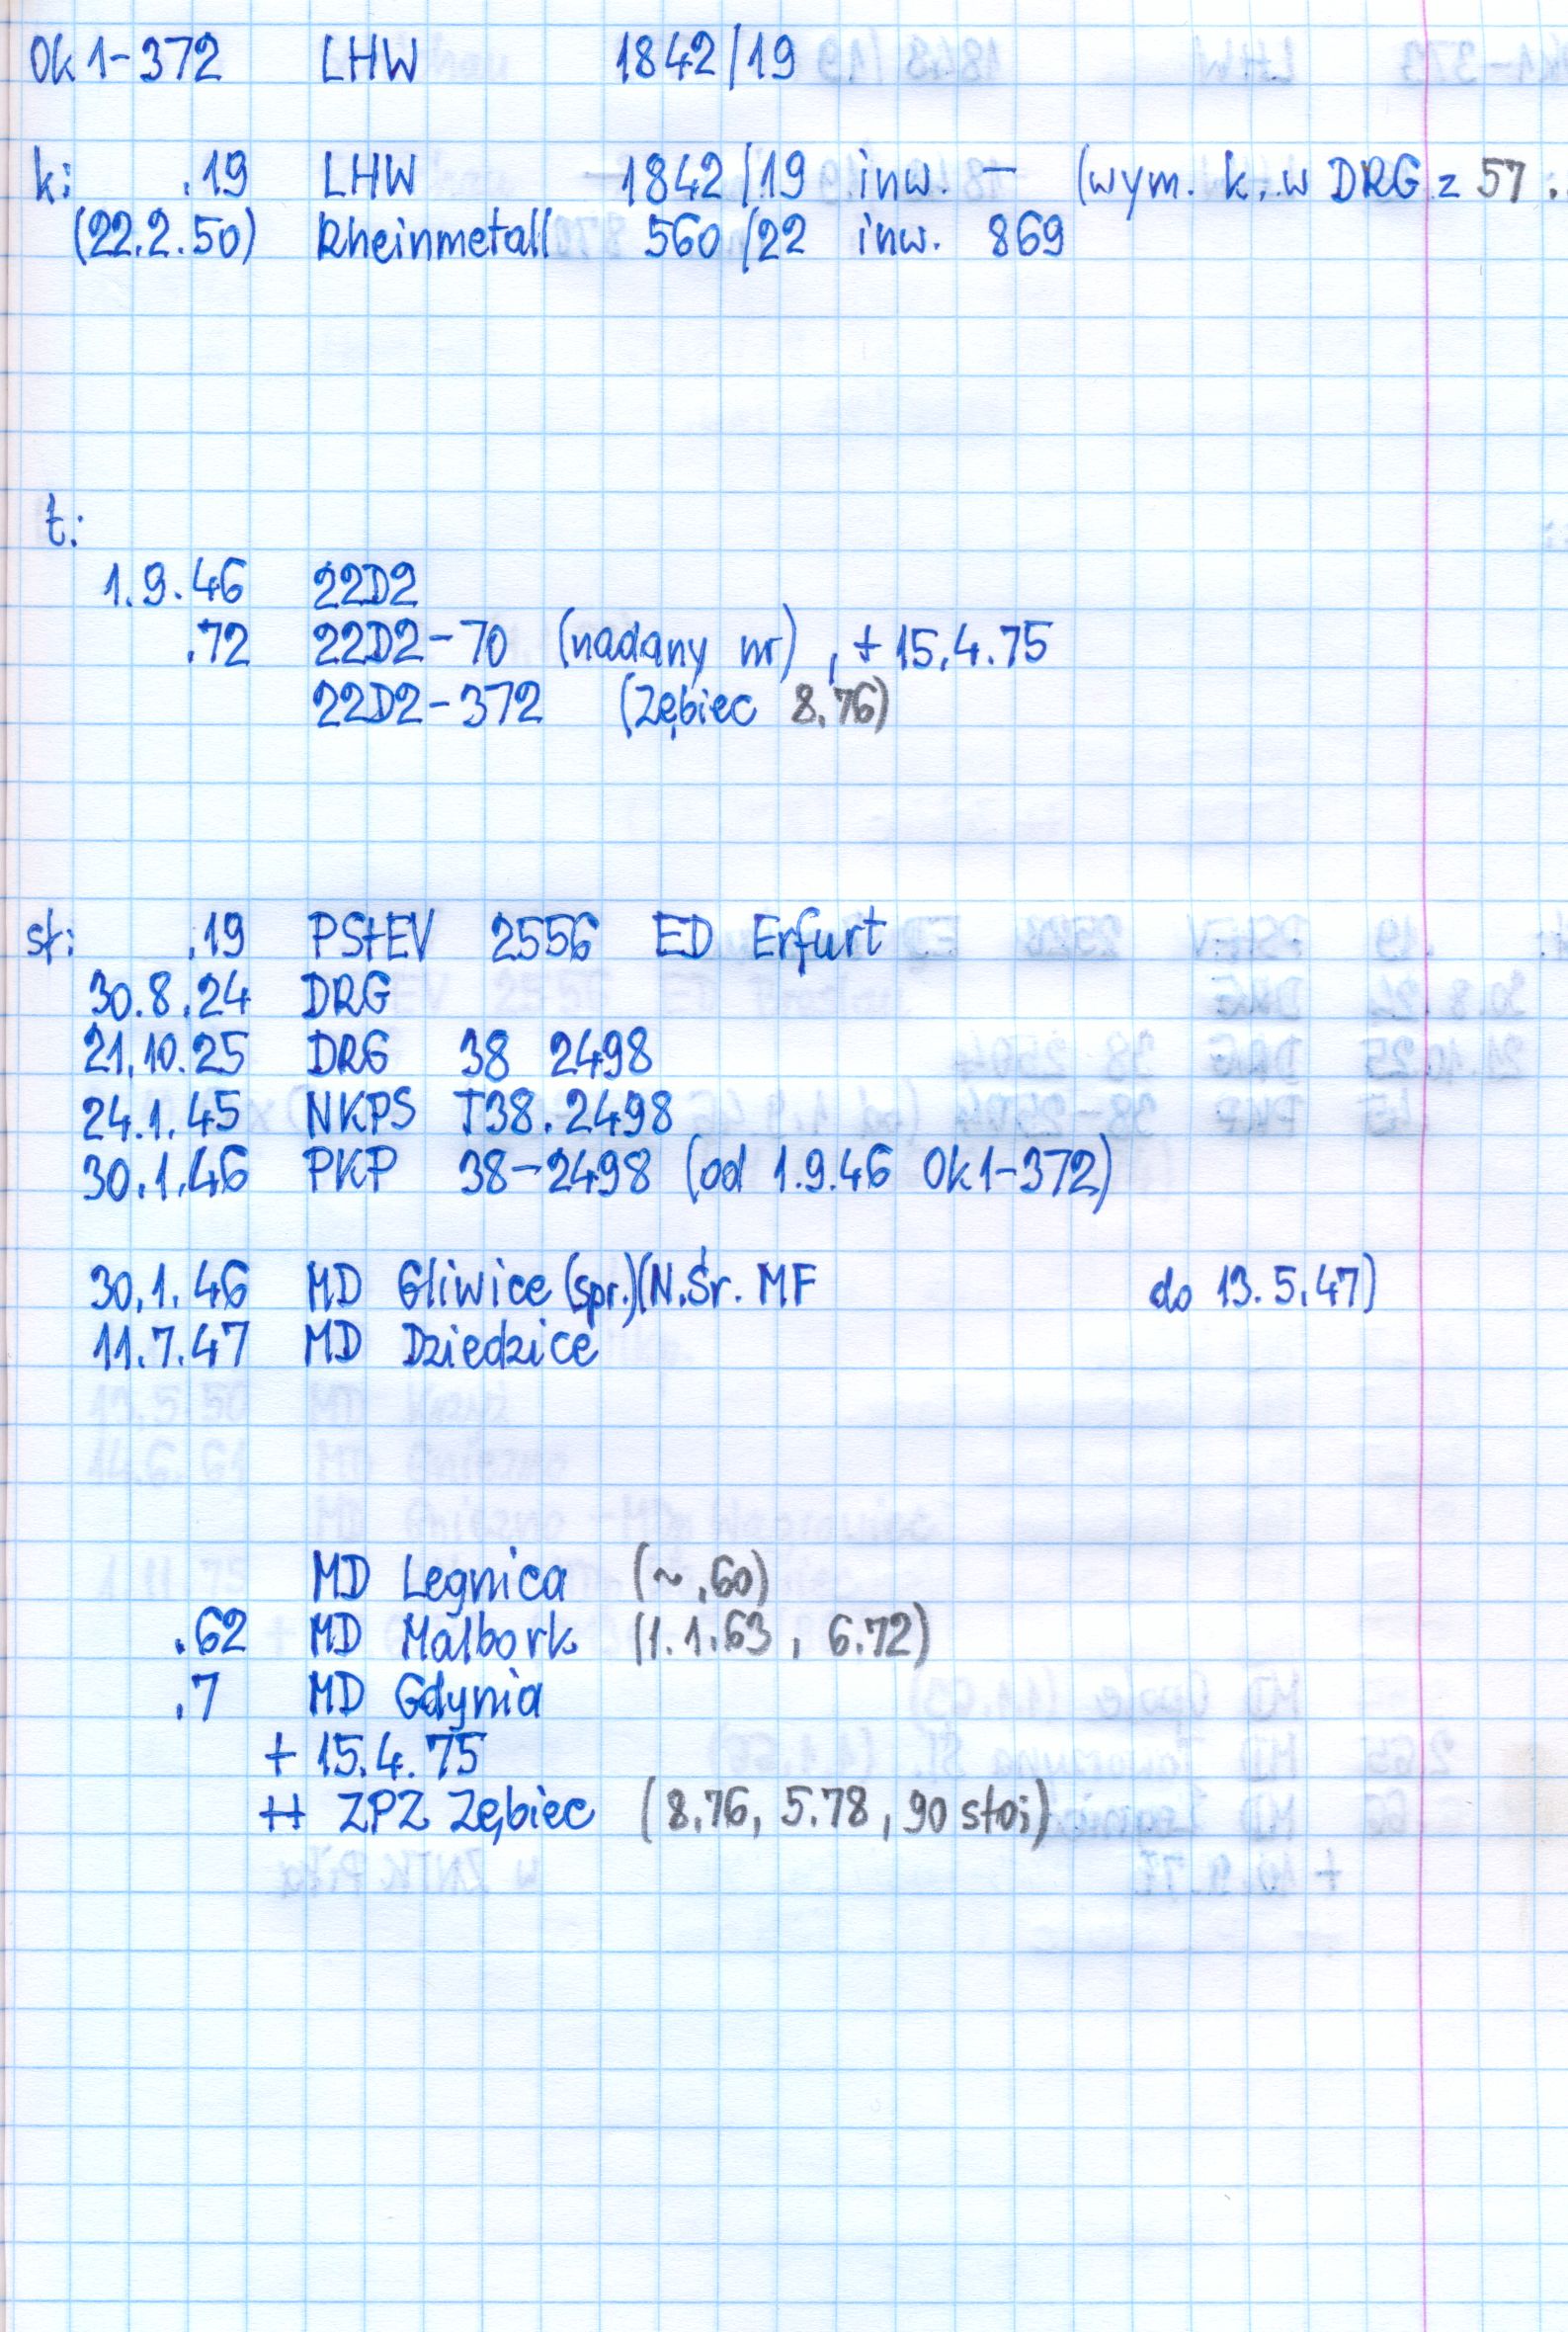 Ok1-372 LHW 1842/19
k: .19 LHW 1842/19 inw. - (wym. k. w DRG z 57.
(22.2.50) Rheinmetall 560/22 inw. 869
t:
1.9.46 22D2
.72 22D2-70 (nadany nr), + 15.4.75
22D2-372 (Zębiec 8.76)
st: .19 PStEV 2556 ED Erfurt
30.8.24 DRG
21.10.25 DRG 38 2498
24.1.45 NKPS T38.2498
30.1.46 PKP 38-2498 (od 1.9.46 Ok1-372)
30.1.46 MD Gliwice (spr.)(N.Śr. MF do 13.5.47)
11.7.47 MD Dziedzice
MD Legnica (~.60)
.62 MD Malbork (1.1.63, 6.72)
.7 MD Gdynia
+ 15.4.75
++ ZPZ Zębiec (8.76, 5.78, 90 stoi)